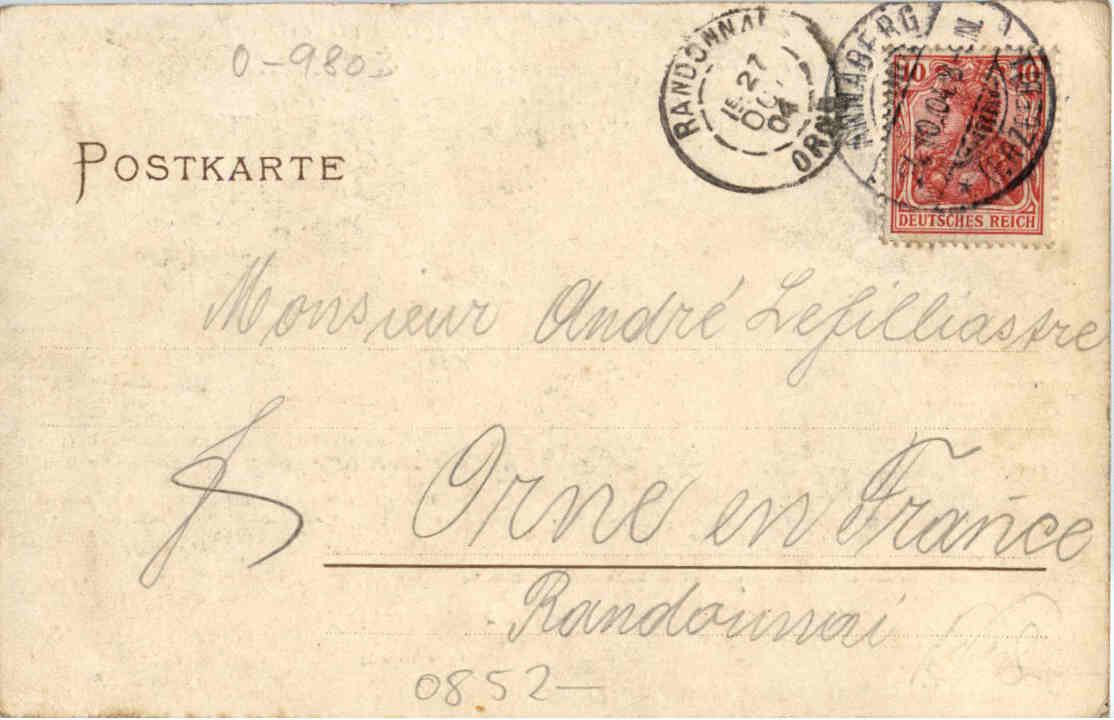 0-9803
RANDONNAI
27
OCT
04
ORNE
ANNABERG
(ERZGEB.)
10 10
DEUTSCHES REICH
POSTKARTE
Monsieur André Lefilliastre
Orne en France
Randounnai
0852-